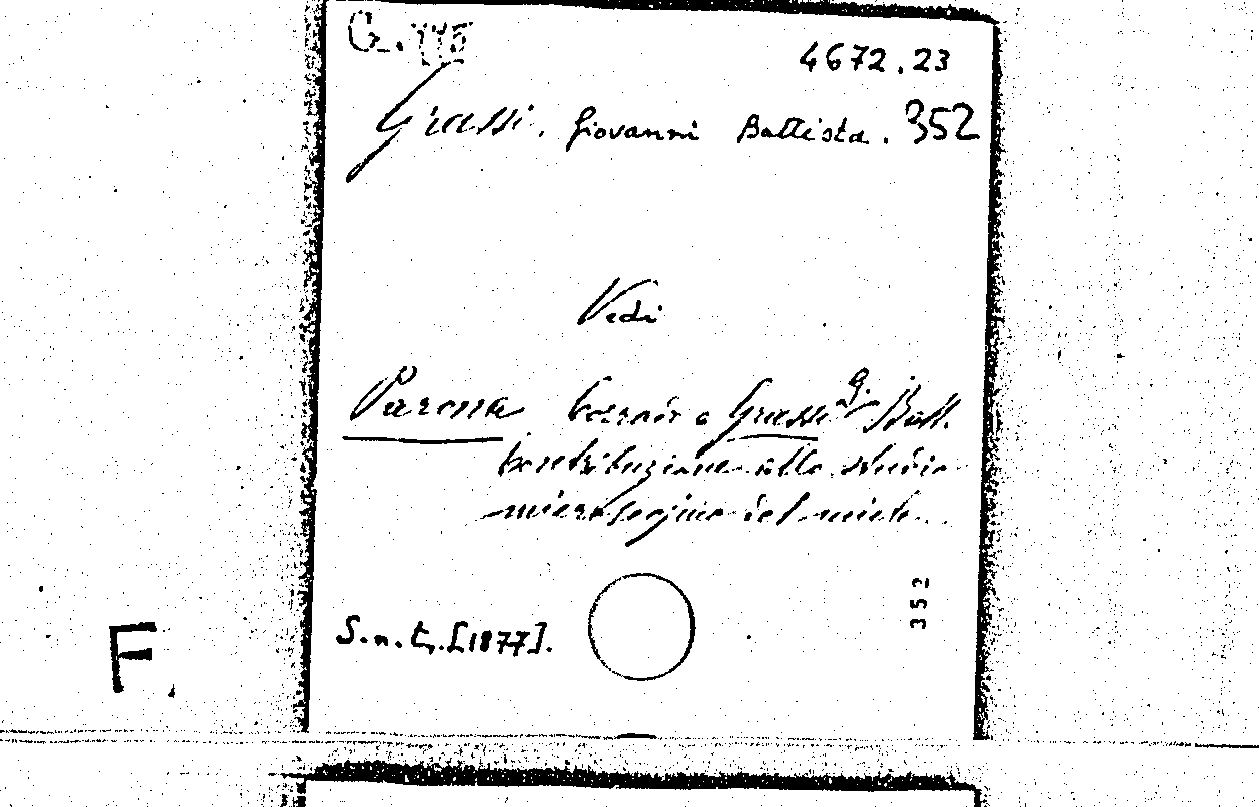 G. 115
4672.23
Grassi. Giovanni Battista. 352
Vedi
Parona Corrado e Grassi G. Batt.
Contribuzione allo studio
microscopico del miele.
352
S.n.t. [1877].
F.